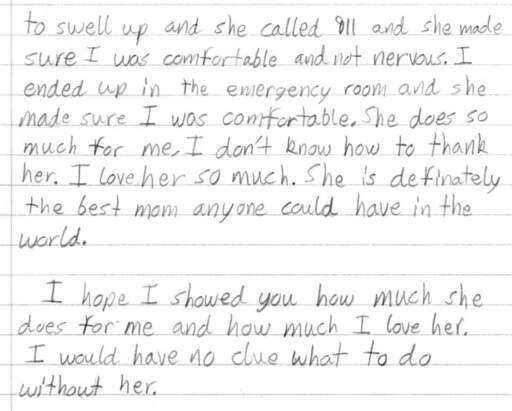 to swell up and she called 911 and she made
sure I was comfortable and not nervous. I
ended up in the emergency room and she
made sure I was comfortable. She does so
much for me, I don't know how to thank
her. I love her so much. She is definately
the best mom anyone could have in the
world.
I hope I showed you how much she
does for me and how much I love her.
I would have no clue what to do
without her.